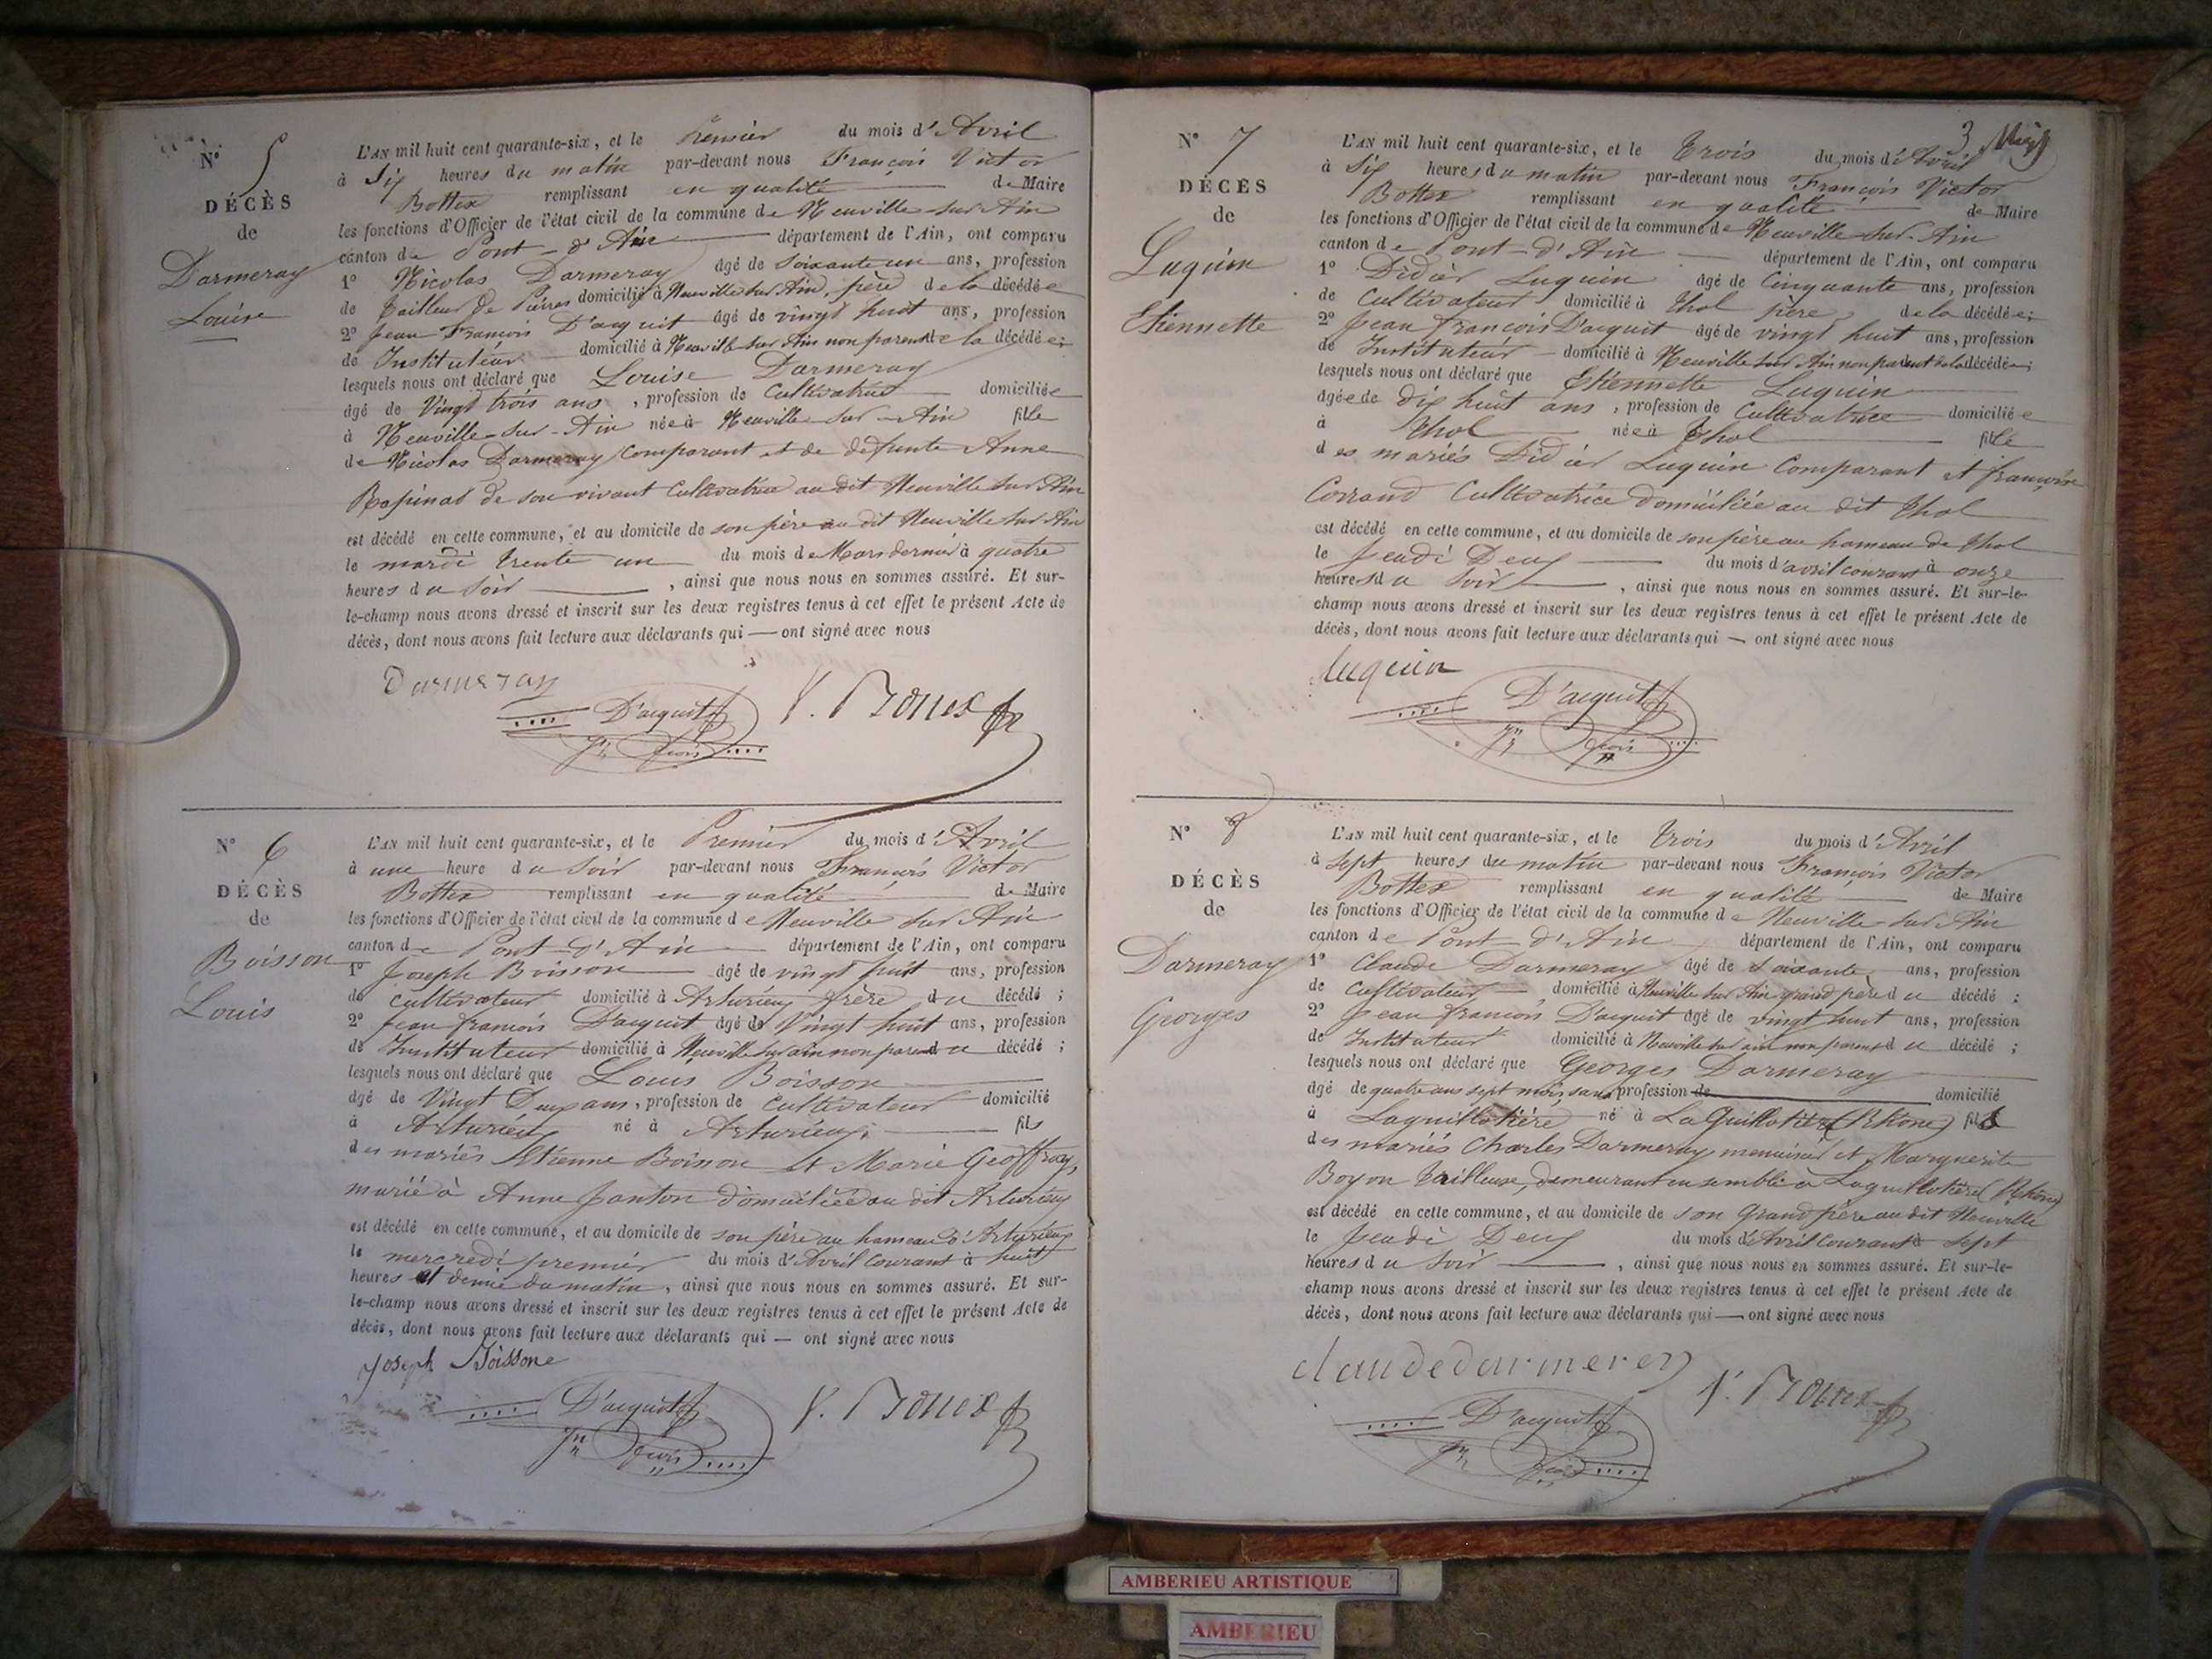 N° 5
DÉCÈS
de
Darmeray
Louise
L'AN mil huit cent quarante-six, et le Premier du mois d'Avril
à Six heures du matin par-devant nous François Victor
Bottex remplissant en qualité de Maire
les fonctions d'Officier de l'état civil de la commune de Neuville sur Ain
canton de Pont-d'Ain département de l'Ain, ont comparu
1° Nicolas Darmeray âgé de soixante un ans, profession
de Tailleur de Pierres domicilié à Neuville sur Ain, père de la décédée
2° Jean François D'acquit âgé de vingt huit ans, profession
de Instituteur domicilié à Neuville sur Ain non parent de la décédée;
lesquels nous ont déclaré que Louise Darmeray
âgé de Vingt trois ans, profession de Cultivatrice domiciliée
à Neuville-sur-Ain née à Neuville-sur-Ain fille
de Nicolas Darmeray Comparant et de défunte Anne
Rapinat de son vivant Cultivatrice au dit Neuville sur Ain
est décédé en cette commune, et au domicile de son père au dit Neuville sur Ain
le mardi trente un du mois de Mars dernier à quatre
heures du soir, ainsi que nous nous en sommes assuré. Et sur-
le-champ nous avons dressé et inscrit sur les deux registres tenus à cet effet le présent Acte de
décès, dont nous avons fait lecture aux déclarants qui — ont signé avec nous
Darmeray
D'acquit V. Bottex
Jn fçois
N° 6
DÉCÈS
de
Boisson
Louis
L'AN mil huit cent quarante-six, et le Premier du mois d'Avril
à une heure du Soir par-devant nous François Victor
Bottex remplissant en qualité de Maire
les fonctions d'Officier de l'état civil de la commune de Neuville sur Ain
canton de Pont-d'Ain département de l'Ain, ont comparu
1° Joseph Boisson âgé de vingt huit ans, profession
de cultivateur domicilié à Arturieux frère du décédé;
2° Jean françois D'acquit âgé de Vingt huit ans, profession
de Instituteur domicilié à Neuville sur ain non parent du décédé;
lesquels nous ont déclaré que Louis Boisson
âgé de Vingt Deux ans, profession de Cultivateur domicilié
à Arturieux né à Arturieux fils
des mariés Etienne Boisson et Marie Geoffray,
marié à Anne Janton domiciliée au dit Arturieux
est décédé en cette commune, et au domicile de son père au hameau d'Arturieux
le mercredi premier du mois d'Avril Courant à huit
heures et demie du matin, ainsi que nous nous en sommes assuré. Et sur-
le-champ nous avons dressé et inscrit sur les deux registres tenus à cet effet le présent Acte de
décès, dont nous avons fait lecture aux déclarants qui — ont signé avec nous
Joseph Boissone
D'acquit V. Bottex
Jn fçois
3
N° 7
DÉCÈS
de
Luquin
Etiennette
L'AN mil huit cent quarante-six, et le Trois du mois d'Avril
à Six heures du matin par-devant nous François Victor
Bottex remplissant en qualité de Maire
les fonctions d'Officier de l'état civil de la commune de Neuville-sur-Ain
canton de Pont-d'Ain département de l'Ain, ont comparu
1° Didier Luquin âgé de Cinquante ans, profession
de Cultivateur domicilié à Thol père de la décédée;
2° Jean françois D'acquit âgé de vingt huit ans, profession
de Instituteur domicilié à Neuville sur Ain non parent de la décédée;
lesquels nous ont déclaré que Etiennette Luquin
âgée de dix huit ans, profession de Cultivatrice domiciliée
à Thol née à Thol fille
des mariés Didier Luquin Comparant et françoise
Corrand Cultivatrice domiciliée au dit Thol
est décédé en cette commune, et au domicile de son père au hameau de Thol
le Jeudi Deux du mois d'avril courant à onze
heures du soir, ainsi que nous nous en sommes assuré. Et sur-le-
champ nous avons dressé et inscrit sur les deux registres tenus à cet effet le présent Acte de
décès, dont nous avons fait lecture aux déclarants qui — ont signé avec nous
luquin
D'acquit
Jn fçois
N° 8
DÉCÈS
de
Darmeray
Georges
L'AN mil huit cent quarante-six, et le trois du mois d'Avril
à sept heures du matin par-devant nous François Victor
Bottex remplissant en qualité de Maire
les fonctions d'Officier de l'état civil de la commune de Neuville-sur Ain
canton de Pont-d'Ain département de l'Ain, ont comparu
1° Claude Darmeray âgé de soixante ans, profession
de Cultivateur domicilié à Neuville sur Ain grand père du décédé;
2° Jean françois D'acquit âgé de vingt huit ans, profession
de Instituteur domicilié à Neuville sur ain non parent du décédé;
lesquels nous ont déclaré que Georges Darmeray
âgé de quatre ans sept mois sans profession de domicilié
à Laguillotière né à La Guillotière (Rhône) fils
des mariés Charles Darmeray menuisier et Marguerite
Boyon Tailleuse, demeurant ensemble à Laguillotière (Rhône)
est décédé en cette commune, et au domicile de son Grand père au dit Neuville
le Jeudi Deux du mois d'Avril Courant à sept
heures du soir, ainsi que nous nous en sommes assuré. Et sur-le-
champ nous avons dressé et inscrit sur les deux registres tenus à cet effet le présent Acte de
décès, dont nous avons fait lecture aux déclarants qui — ont signé avec nous
claudedarmerey
D'acquit V. Bottex
Jn fçois
AMBERIEU ARTISTIQUE
AMBERIEU